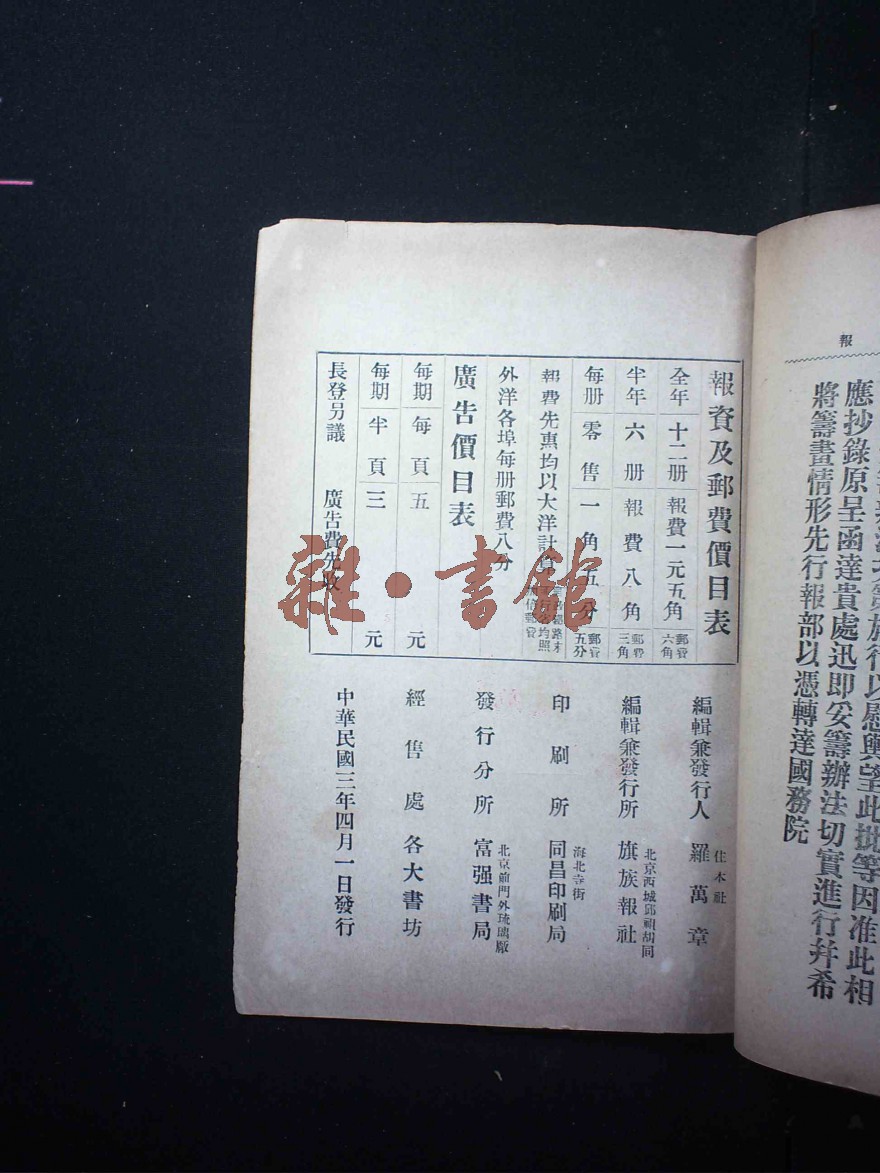 報
應抄錄原呈函達貴處迅即妥籌辦法切實進行幷希
將籌畫情形先行報部以憑轉達國務院
報資及郵費價目表
全年 十二册 報費一元五角 郵費六角
半年 六册 報費八角 郵費三角
每册 零售 一角五分 郵費五分
報費先惠均以大洋計算
外洋各埠每册郵費八分
廣告價目表
每期每頁五元
每期半頁三元
長登另議 廣告費先收
編輯兼發行人 羅萬章 住本社
編輯兼發行所 旗族報社
印刷所 同昌印刷局 海北寺街
發行分所 富强書局 北京前門外琉璃廠
經售處 各大書坊
中華民國三年四月一日發行
雜·書館